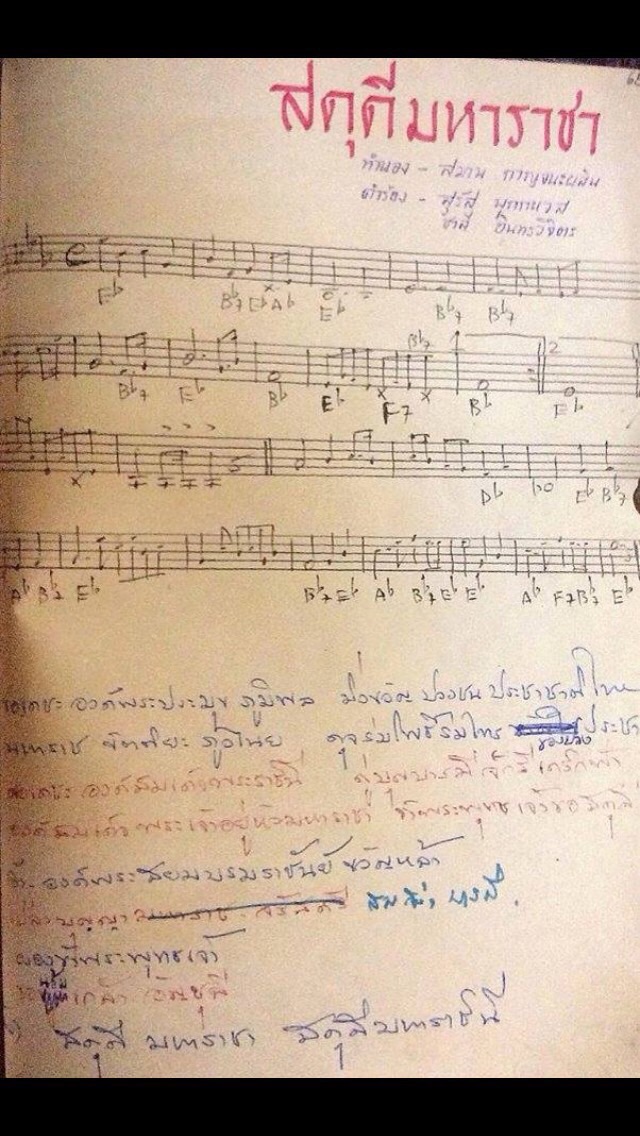 สดุดีมหาราชา
ทำนอง - สมาน กาญจนะผลิน
คำร้อง - สุรัส พุกกะเวส
ชาลี อินทรวิจิตร
C
E♭ B♭7 E♭ A♭ E♭ B♭7 B♭7
B♭7 1 2
B♭7 E♭ B♭ E♭ F7 B♭ E♭
D♭ E♭ B♭7
A♭ B♭7 E♭ B♭7 E♭ A♭ B♭7 E♭ E♭ A♭ F7 B♭7 E♭
องค์พระประมุข ภูมิพล มิ่งขวัญ ปวงชน ประชาชาติไทย
มหาราช ขัตติยะ ภูวไนย ดุจร่มโพธิ์ร่มไทร ของปวงประชา
องค์สมเด็จพระราชินี คู่บุญบารมี จักรีเกริกฟ้า
องค์สมเด็จพระเจ้าอยู่หัวมหาราชา ข้าพระพุทธเจ้าขอสดุดี
องค์พระสยมบรมราชันย์ ขวัญหล้า
บุญญา สมสง่า บารมี
ผองข้าพระพุทธเจ้า
น้อมเกล้า อัญชุลี
สดุดี มหาราชา สดุดี มหาราชินี